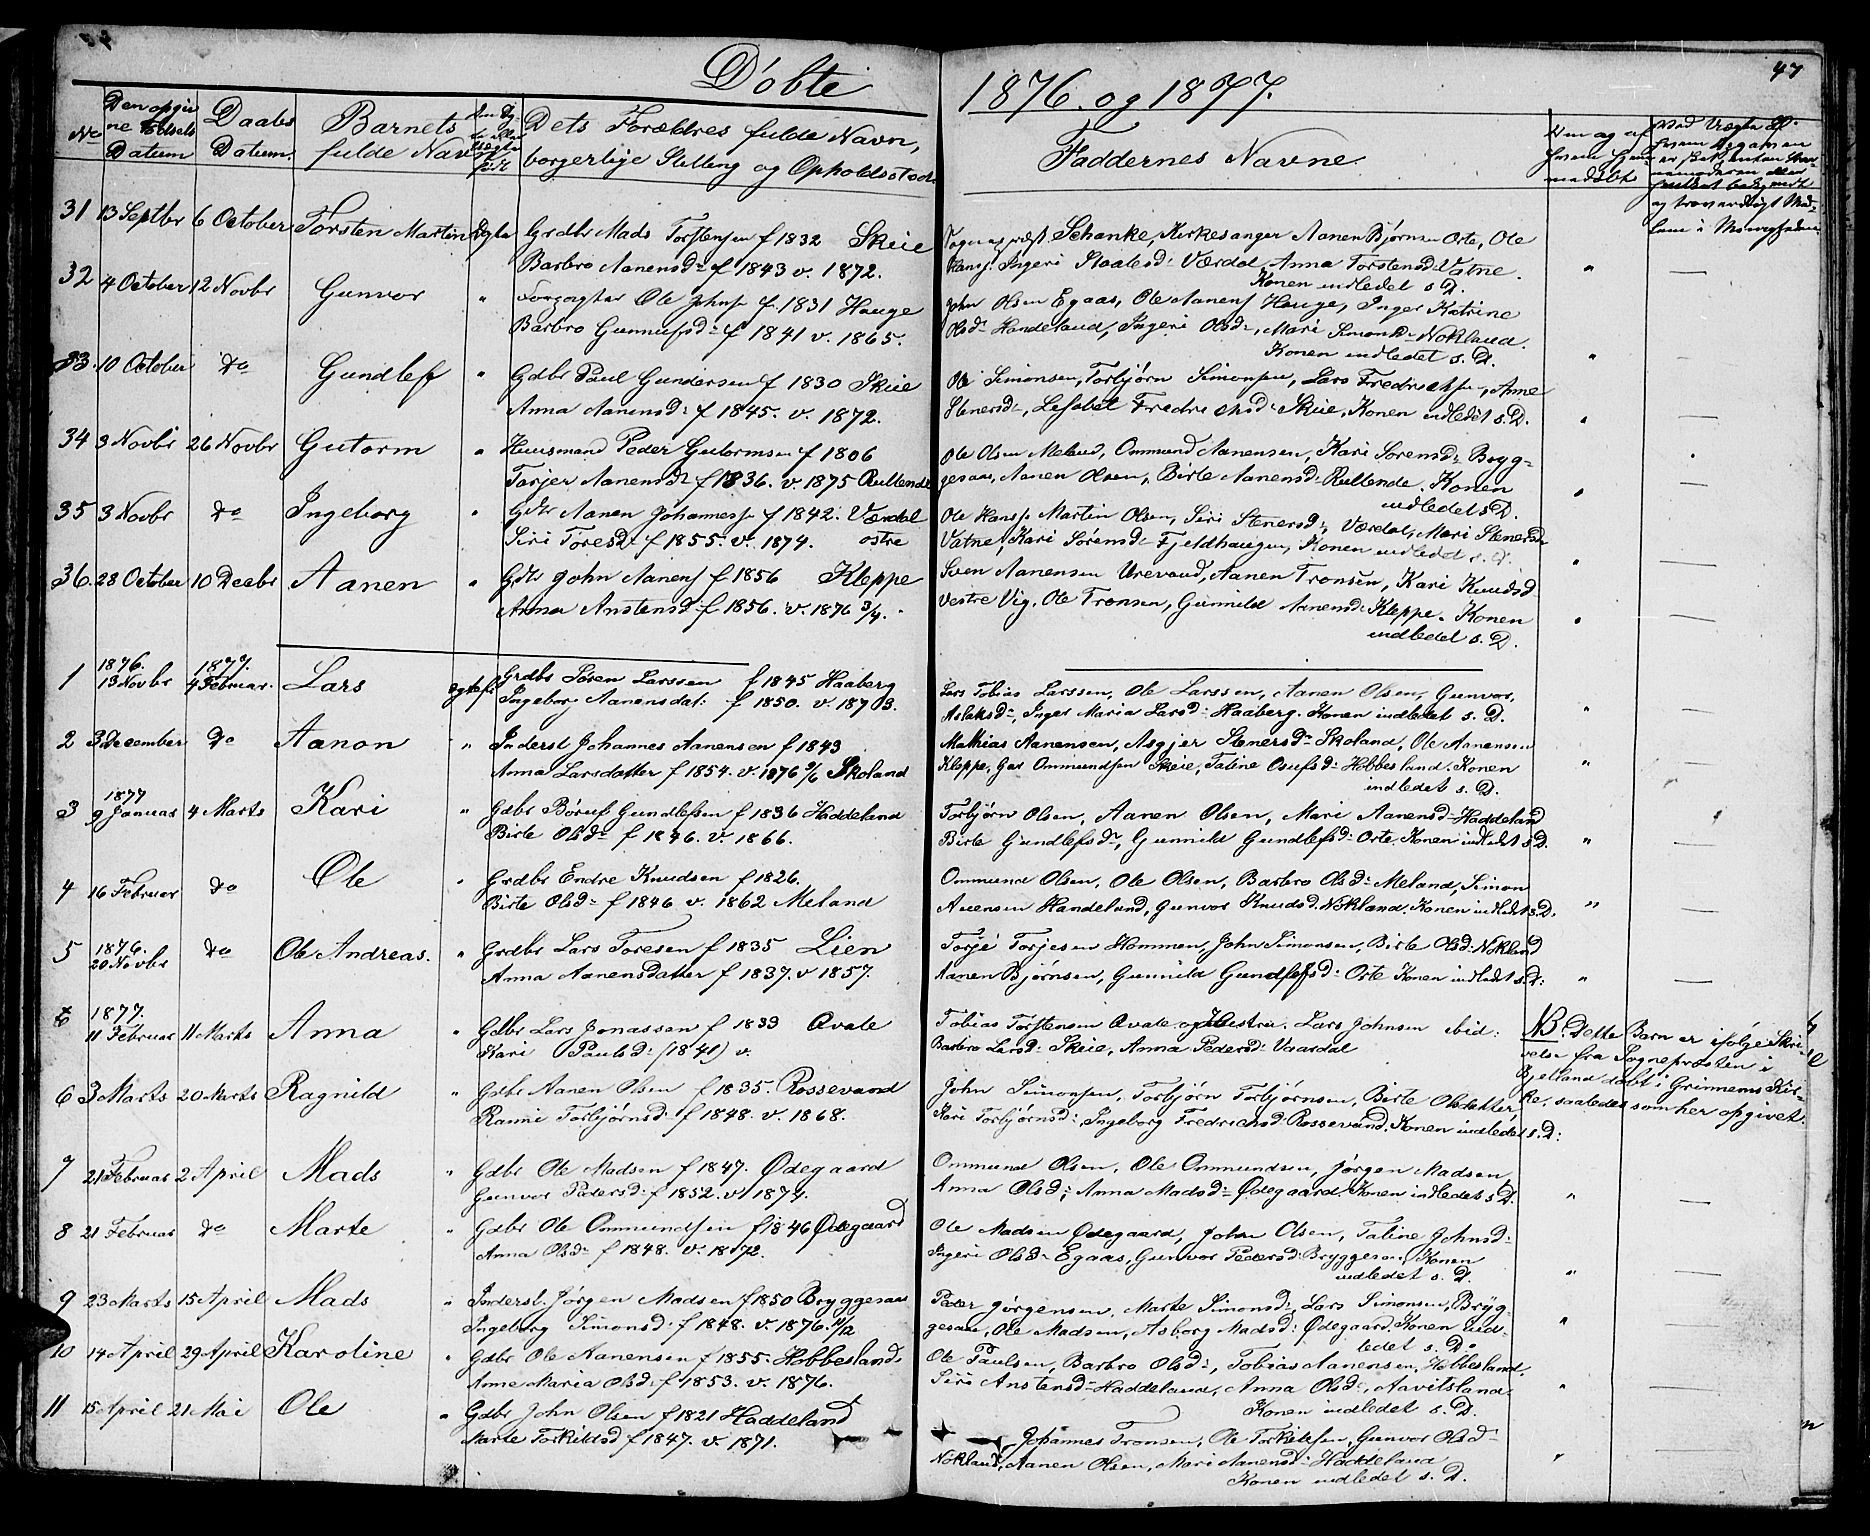 Døbte
1876. og 1877.
47
No
Den opgivne Fødsels Datum
Daabs Datum.
Barnets fulde Navn
Dets Forældres fulde Navn, borgerlige Stilling og Opholdssted
Faddernes Navne.
31 13 Septbr 6 October Torsten Martin Ægte Grdbr Mads Torstensen f 1832 Skeie
Barbro Aanensd: f 1843 v. 1872.
Schanke, Kirkesanger Aanen Bjørnsen Orte, Ole
Hansf. Ingeri Staalesd: Værdal, Anna Torstensd: Vatne.
Konen indledet s. D.
32 4 October 12 Novbr Gunvor " Ole Johnf f 1831 Hauge
Barbro Gunnufsd: f 1841 v. 1865.
John Olsen Egaas, Ole Aanenf Hauge, Inger Katrine
Olsd: Handeland, Ingeri Olsd:, Mari Simonsd: Nokland.
Konen indledet s. D.
33. 10 October do Gundlef " Gdbr Paul Gundersen f 1830 Skeie
Anna Aanensd: f 1845. v. 1872.
Ole Simonsen, Torbjørn Simonsen, Lars Fredriksen, Anne
Stenersd:, Lisabet Fredriksd: Skeie, Konen indledet s. D.
34 3 Novbr 26 Novbr Gutorm " Huusmand Peder Gutormsen f 1806
Torjer Aanensd: f 1836. v. 1875 Rullende
Ole Olsen Meland, Ommund Aanensen, Kari Sørensd: Bryg-
gesaa, Aanen Olsen, Birte Aanensd: Rullende. Konen
indledet s. D.
35 3 Novbr do Ingeborg " Gdbr Aanen Johannesf f 1842. Værdal
Siri Toresd: f 1855. v. 1874. østre
Ole Hansf. Martin Olsen, Siri Stenersd:, Værdal, Mari Stenersd:
Vatne, Kari Sørensd: Fjeldhaugen, Konen indledet s. D.
36. 28 October 10 Decbr Aanen " Gdbr John Aanenf f 1856 Kleppe
Anna Anstensd: f 1856. v. 1876 3/4.
Sven Aanensen Urevand, Aanen Tronsen, Kari Knudsd
Vestre Vig, Ole Tronsen, Gunnild Aanensd: Kleppe. Konen
indledet s. D.
1876. 1877.
1 13 Novbr 4 Februar. Lars ægtef: Grdbr Søren Larssen f 1845 Haaberg
Ingeborg Aanensdat: f 1850. v. 1873.
Lars Tobias Larssen, Ole Larssen, Aanen Olsen, Gunvor,
Aslaksd:, Inger Maria Larsd: Haaberg. Konen indledet s. D.
2 3. December do Aanon " Inderst Johannes Aanensen f 1843
Anna Larsdatter f 1854. v. 1876 9/6 Skoland
Mathias Aanensen, Asgjer Stenersd: Skoland, Ole Aanensen
Kleppe, Gas Ommundsen Skeie, Taline Osufsd: Hobbesland. Konen
indledet s. D.
1877
3 9 Januar 4 Marts Kari " Gdbr Børuf Gundlefsen f 1836 Haddeland
Birte Olsd: f 1846. v. 1866.
Torbjørn Olsen, Aanen Olsen, Mari Aanensd: Haddeland
Birte Gundlefsd:, Gunnild Gundlefsd: Orte. Konen indledet s. D.
4 16 Februar do Ole " Grdbr Endre Knudsen f 1826.
Birte Olsd: f 1846 v. 1862 Meland
Ommund Olsen, Ole Olsen, Barbro Olsd: Meland, Simon
Auensen Handeland, Gunvor Knudsd. Nokland. Konen indledt s. D.
1876.
5 20 Novbr do Ole Andreas. " Grdbr Lars Toresen f 1835 Lien
Anna Aanensdatter f 1837. v 1857.
Torje Torjesen Hommen, John Simonsen, Birte Olsd: Nokland
Aanen Bjørnsen, Gunnild Gundlefsd: Orte Konen indledt s. D:
1877.
11 Februar 11 Marts Anna " Gdbr Lars Jonassen f 1839 Qvale
Kari Paulsd: (1841) v.
Tobias Torstensen Qvale og Hustru. Lars Johnsen ibid:
Barbro Larsd: Skeie, Anna Pedersd: Vaardal
NB. Dette Barn er ifølge Skri-
velse fra Sogneprosten i
Bjelland døbt i Grinnems Kir-
ke, saaledes som her opgivet.
6 3 Marts 20 Marts Ragnild " Gdbr Aanen Olsen f 1835. Rossevand
Ranni Torbjørnsd: f 1848. v. 1868.
John Simonsen, Torbjørn Torbjørnsen, Birte Olsdatter,
Kari Torbjørnsd:, Ingeborg Fredrichsd: Rossevand. Konen indledet s. D:
7 21 Februar 2 April Mads " Gdbr Ole Madsen f 1847. Ødegaard
Gunvor Pedersd: f 1852. v. 1874.
Ommund Olsen, Ole Ommundsen, Jørgen Madsen,
Anna Olsd:, Anna Madsd: Ødegaard. Konen indledet s. D.
8 21 Februar do Marte " Gdbr Ole Ommundsen f 1846 Ødegaard
Anna Olsd: f 1848. v. 1872.
Ole Madsen Ødegaard, John Olsen, Taline Johnsd:
Ingeri Olsd: Egaas, Gunvor Pedersd: Bryggesaa, Konen
indledet s. D.
9 23 Marts 15 April Mads " Inderst. Jørgen Madsen f 1850 Bryggesaa
Ingeborg Simonsd: f 1848. v. 1876. 11/12
Peder Jørgensen, Marte Simonsd:, Lars Simonsen, Bryg-
gesaa, Ole Madsen, Asborg Madsd: Ødegaard. Konen ind-
ledet s. D.
10 14 April 29 April Karoline " Gdbr Ole Aanensen f 1855. Hobbesland.
Anne Maria Olsd: f 1853. v. 1876.
Ole Paulsen, Barbro Olsd:, Tobias Aanensen, Hobbesland,
Siri Anstensd: Haddeland, Anna Olsd:, Aavitsland
Konen indledet s. D.
11 15 April 21 Mai Ole " Gdbr John Olsen f 1821 Haddeland
Marte Torkildsd f 1847. v. 1871.
Johannes Tronsen, Ole Torkelsen, Gunvor Olsd:
Nokland, Aanen Olsen, Mari Aanensd: Haddeland
Konen indledet s. D.